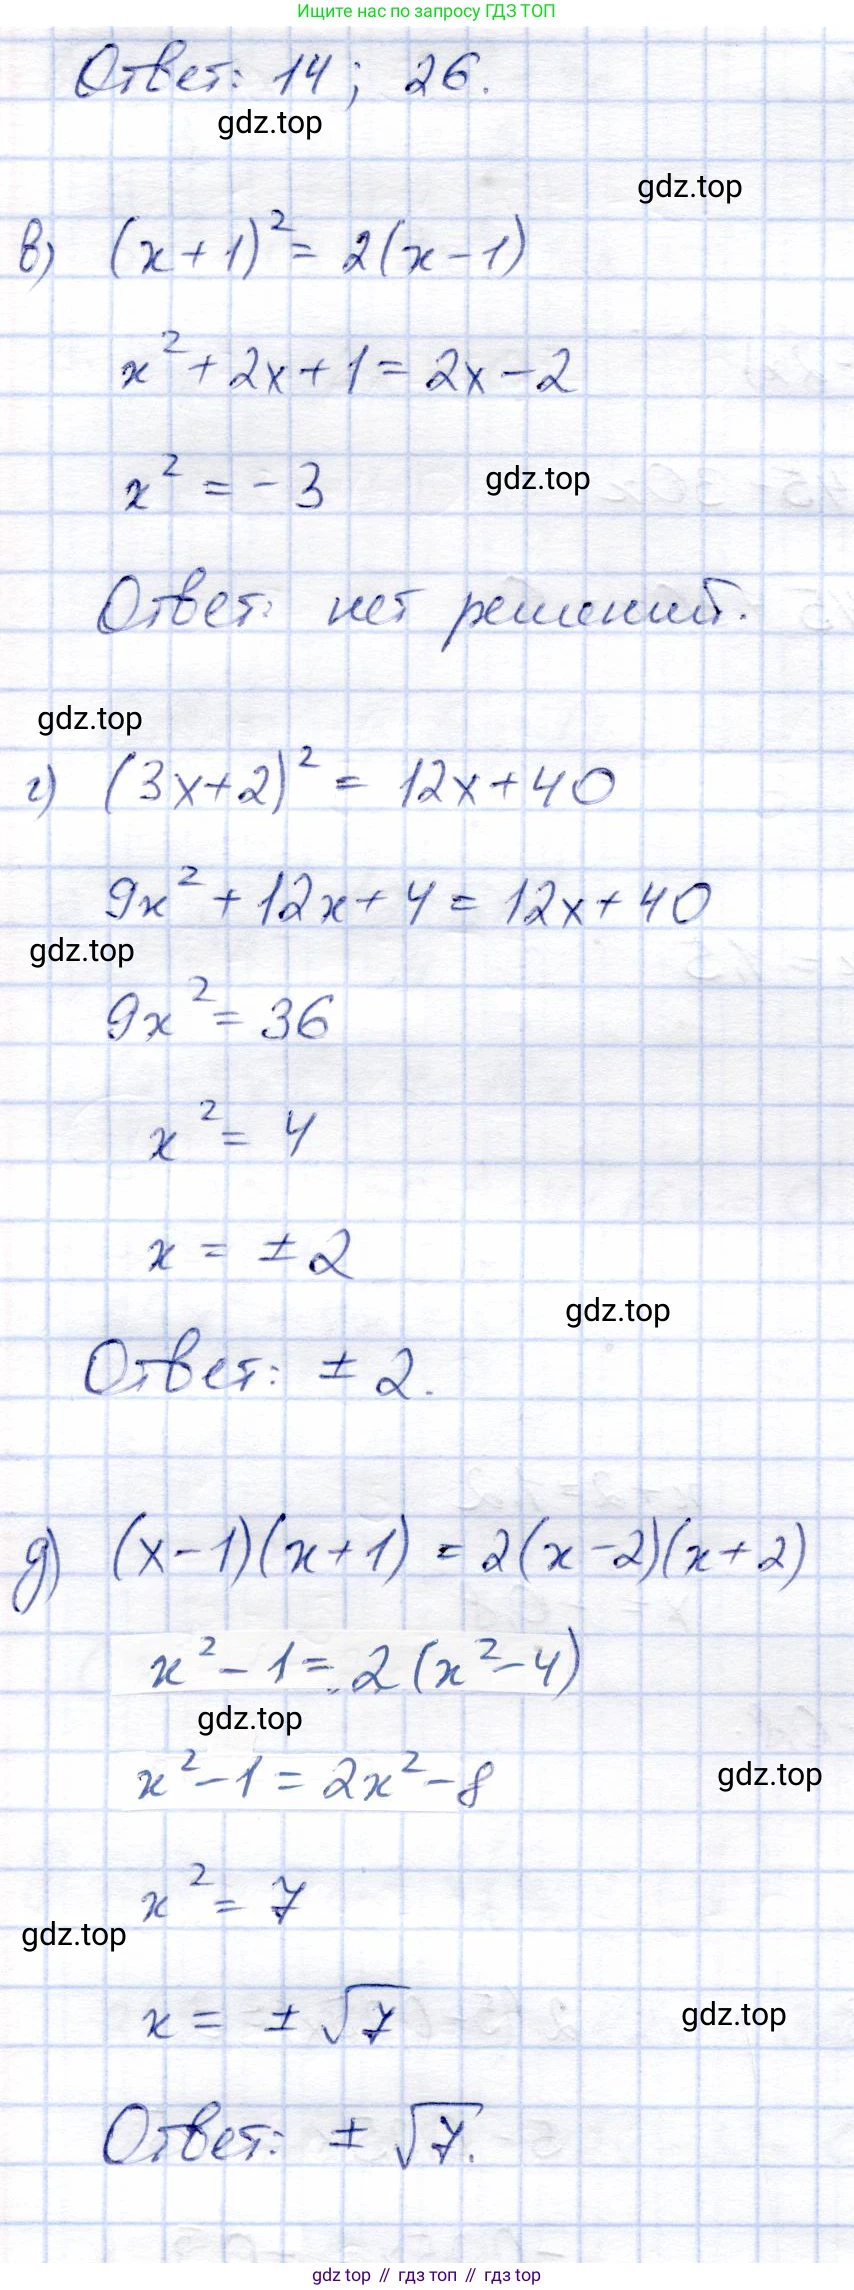 Ищите нас по запросу ГДЗ ТОП
Ответ: 14; 26.
gdz.top
gdz.top
в) (x+1)² = 2(x-1)
x² + 2x + 1 = 2x - 2
x² = -3
gdz.top
Ответ: нет решений.
gdz.top
г) (3x+2)² = 12x + 40
9x² + 12x + 4 = 12x + 40
gdz.top
9x² = 36
x² = 4
x = ± 2
gdz.top
Ответ: ± 2.
д) (x-1)(x+1) = 2(x-2)(x+2)
x² - 1 = 2(x² - 4)
gdz.top
x² - 1 = 2x² - 8
gdz.top
x² = 7
gdz.top
x = ± √7
gdz.top
Ответ: ± √7.
gdz.top // гдз топ // гдз top